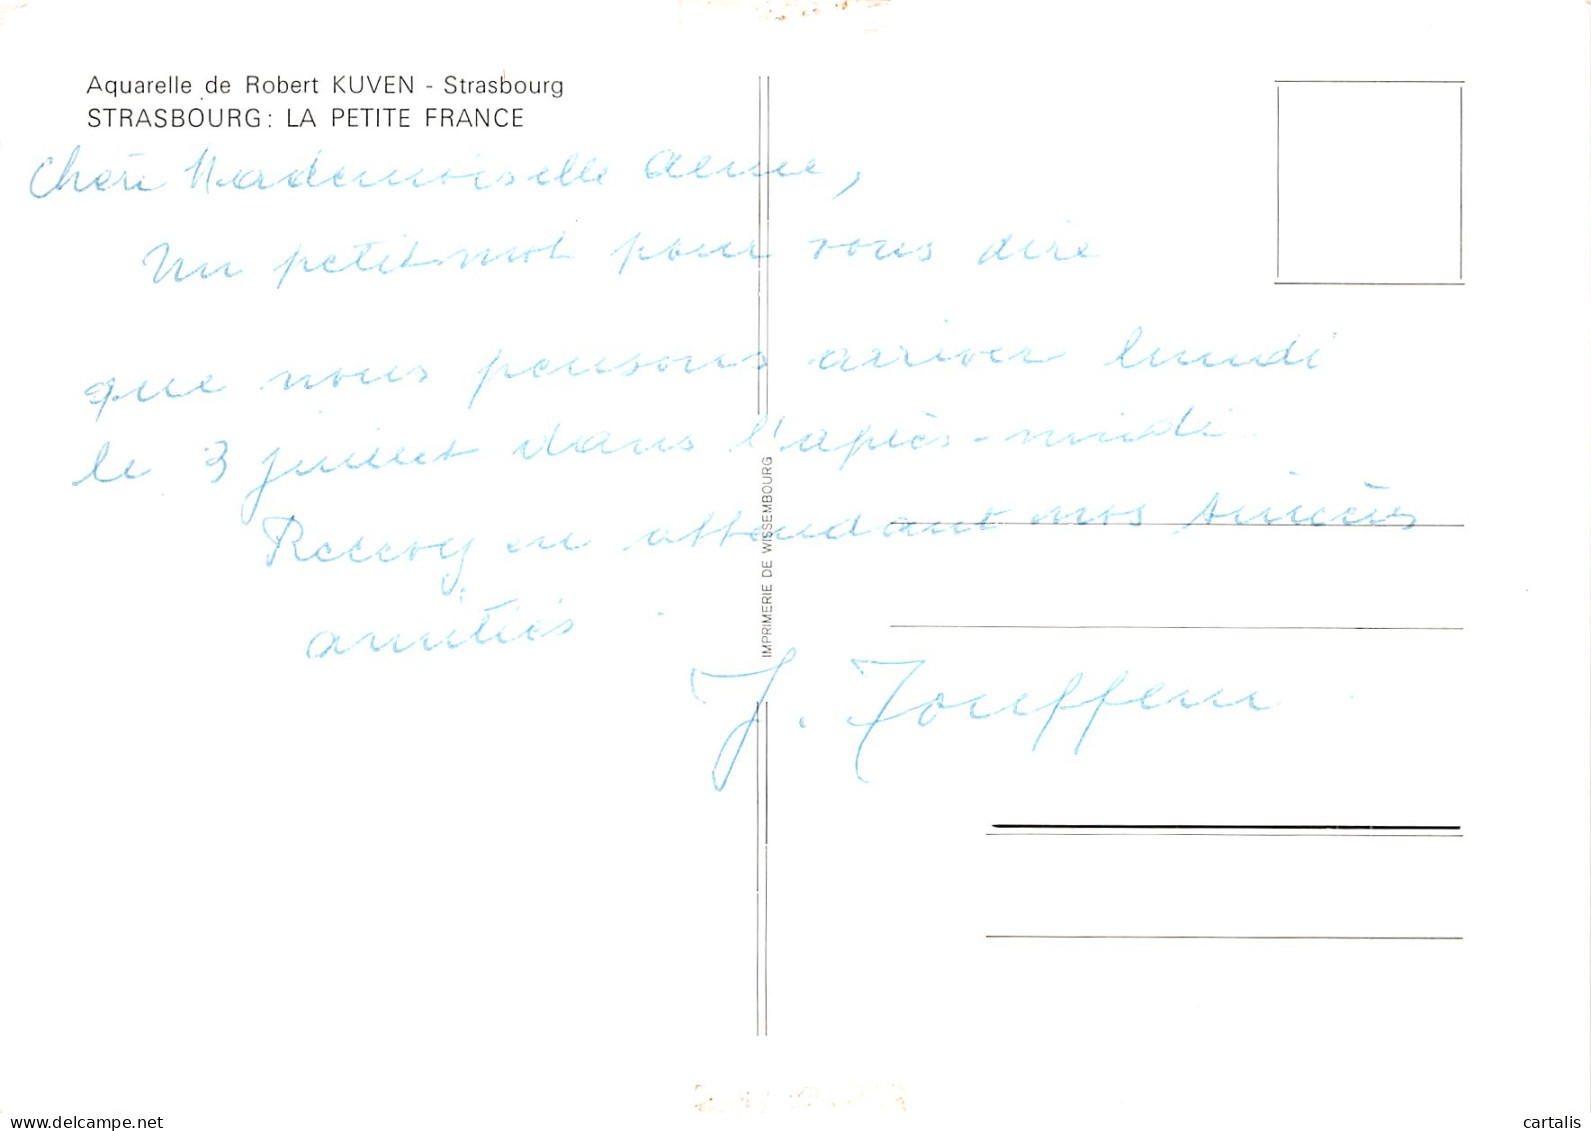 Aquarelle de Robert KUVEN - Strasbourg
STRASBOURG: LA PETITE FRANCE
Chère Mademoiselle
Un petit mot pour vous dire
que nous pensons arriver lundi
le 3 juillet dans l'après-midi.
Recevez en attendant nos sincères
amitiés.
J.
IMPRIMERIE DE WISSEMBOURG
www.delcampe.net
cartalis